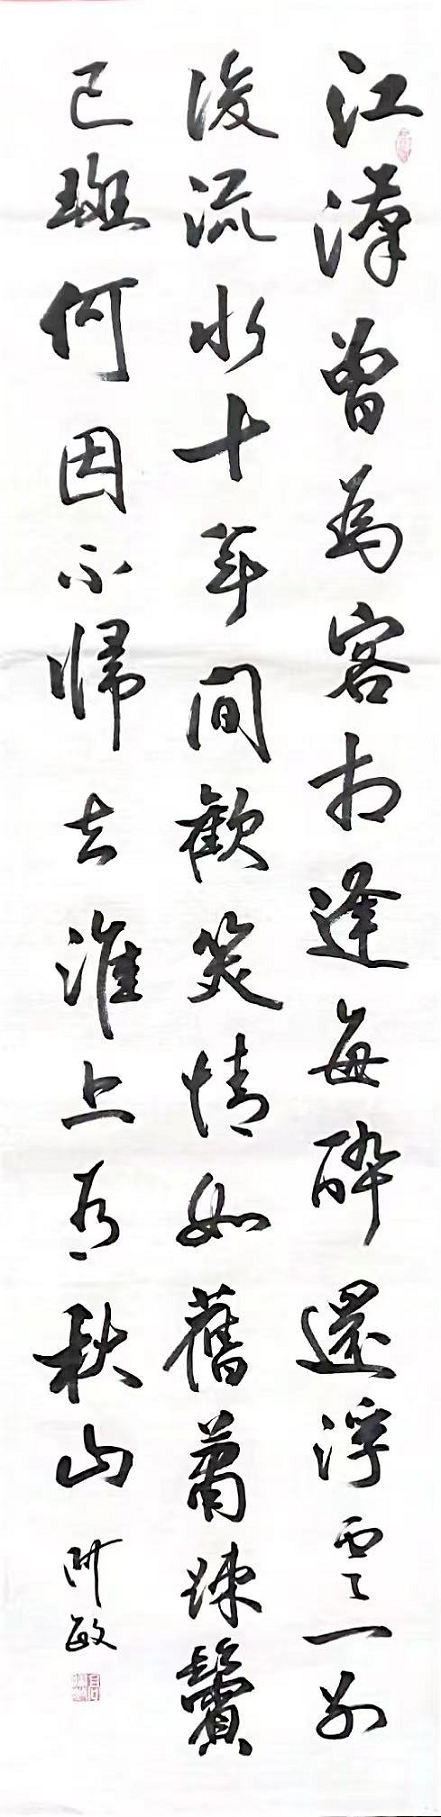 江漢曾為客相逢每醉還浮雲一別
後流水十年間歡笑情如舊蕭疎鬢
已斑何因不歸去淮上有秋山
敏